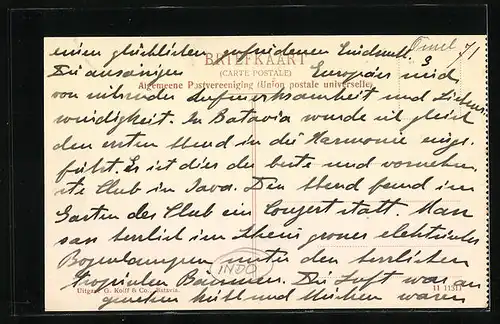 einen glücklichen zufriedenen Eindruck. 3
BRIEFKAART
(CARTE POSTALE)
Die ansässigen Europäer sind
Algemeene Postvereeniging (Union postale universelle).
von rührender Aufmerksamkeit und Liebens-
würdigkeit. In Batavia wurde ich gleich
den ersten Abend in die Harmonie einge-
führt. Es ist dies der beste und vornehm-
ste Club in Java. Den Abend fand im
Garten des Club ein Conzert statt. Man
sass herrlich im Schein grosser elektrischer
Bogenlampen unter den herrlichen
INDO
tropischen Bäumen. Die Luft war an-
Uitgave G. Kolff & Co., Batavia.
genehm kühl und Mücken waren